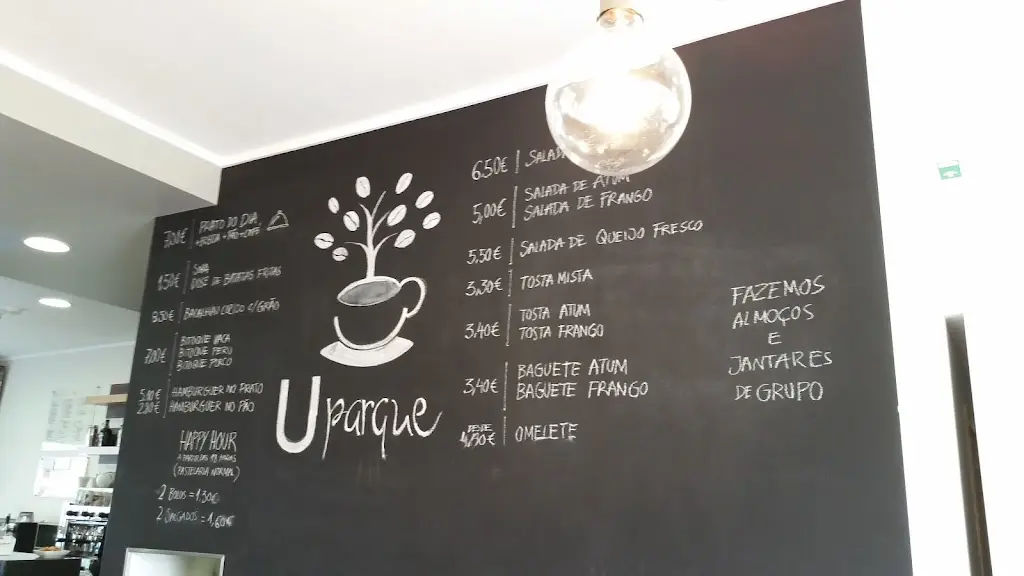 7,00€ PRATO DO DIA
+BEBIDA+PÃO+CAFÉ
1,50€ SOPA
DOSE DE BATATAS FRITAS
BACALHAU COZIDO C/GRÃO
7,00€ BITOQUE VACA
BITOQUE PERU
BITOQUE PORCO
HAMBURGUER NO PRATO
HAMBURGUER NO PÃO
HAPPY HOUR
A PARTIR DAS HORAS
(PASTELARIA NORMAL)
2 BOLOS = 1,30€
2 SALGADOS = 1,60€
U parque
6.50€ SALADA
5,00€ SALADA DE ATUM
SALADA DE FRANGO
5.50€ SALADA DE QUEIJO FRESCO
3,30€ TOSTA MISTA
3,40€ TOSTA ATUM
TOSTA FRANGO
3,40€ BAGUETE ATUM
BAGUETE FRANGO
DESDE
4,50€ OMELETE
FAZEMOS
ALMOÇOS
E
JANTARES
DE GRUPO